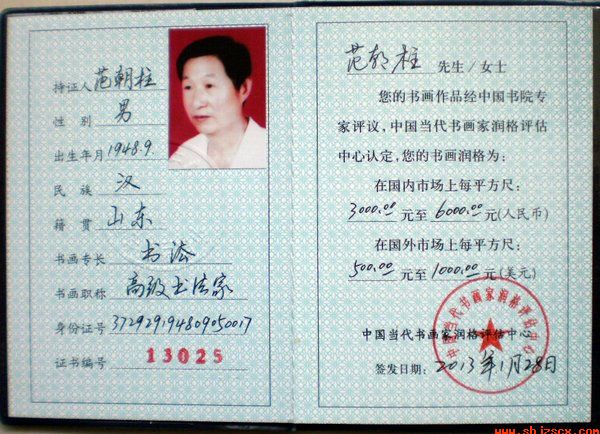 持证人 范朝柱
性别 男
出生年月 1948.9.
民族 汉
籍贯 山东
书画专长 书法
书画职称 高级书法家
身份证号 372929194809050017
证书编号 13025
范朝柱 先生/女士
您的书画作品经中国书院专
家评议，中国当代书画家润格评估
中心认定，您的书画润格为：
在国内市场上每平方尺：
3000.00 元至 6000.00 元(人民币)
在国外市场上每平方尺：
500.00 元至 1000.00 元(美元)
中国当代书画家润格评估中心
中国当代书画家润格评估中心
签发日期： 2013年1月28日
www.shizscx.com